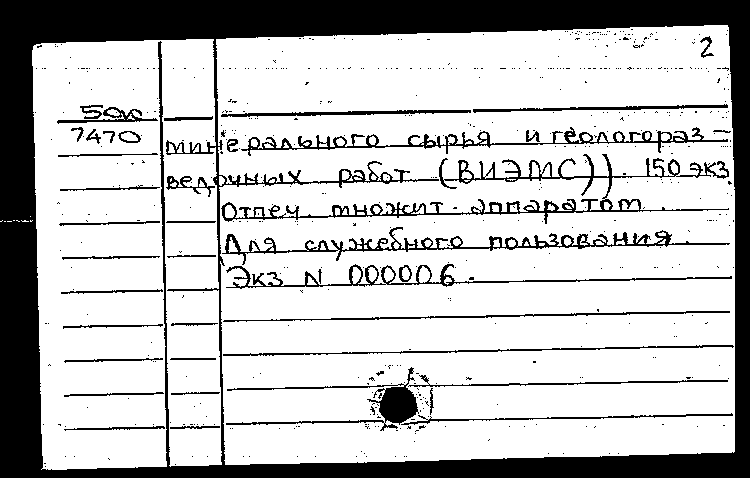 2
7470
минерального сырья и геологораз-
ведочных работ (ВИЭМС)). 150 экз
Отпеч. множит. аппаратом.
Для служебного пользования.
Экз N 000006.